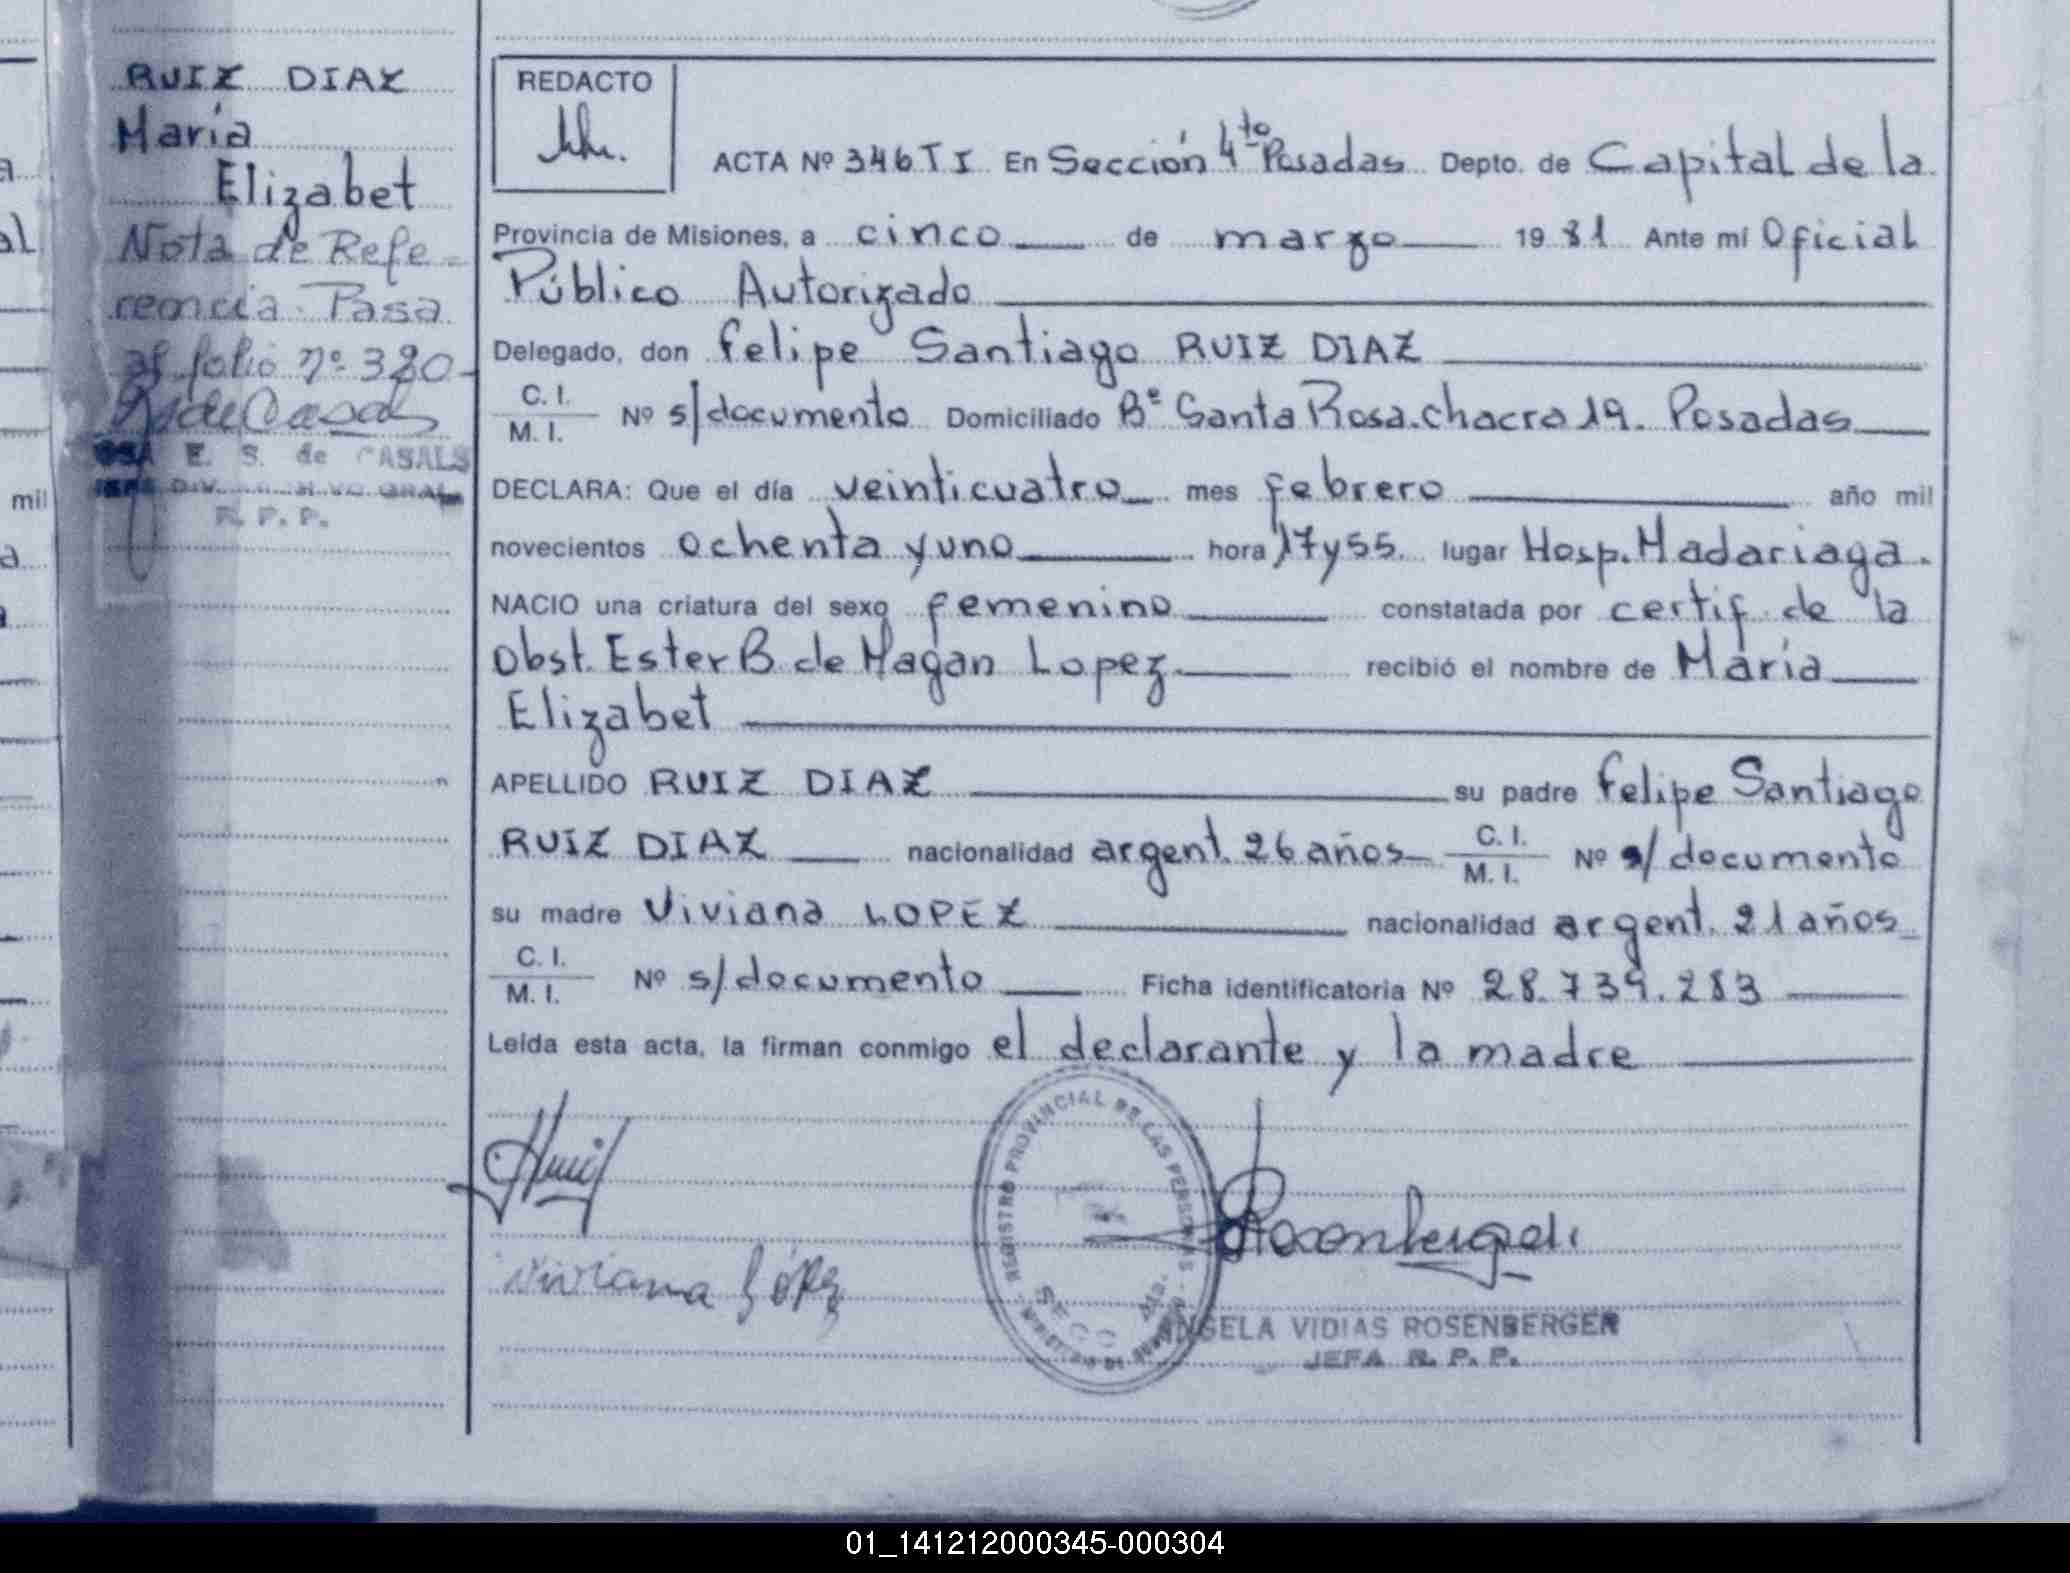 RUIZ DIAZ
María
Elizabet
Nota de Refe-
rencia. Pasa
al folio nº 380
E. S. de CASALS
R. P. P.
mil
REDACTO
ACTA Nº 346 T I En Sección 4to Posadas Depto. de Capital de la
Provincia de Misiones, a cinco de marzo 1981 Ante mí Oficial
Público Autorizado
Delegado, don Felipe Santiago RUIZ DIAZ
C. I.
M. I. Nº s/documento Domiciliado Bº Santa Rosa. chacra 19. Posadas
DECLARA: Que el día veinticuatro mes febrero año mil
novecientos ochenta y uno hora 17 y 55 lugar Hosp. Madariaga.
NACIO una criatura del sexo femenino constatada por certif. de la
obst. Ester B. de Magan Lopez recibió el nombre de María
Elizabet
APELLIDO RUIZ DIAZ su padre Felipe Santiago
RUIZ DIAZ nacionalidad argent. 26 años C. I.
M. I. Nº s/documento
su madre Viviana LOPEZ nacionalidad argent. 21 años
C. I.
M. I. Nº s/documento Ficha identificatoria Nº 28.739.283
Leída esta acta, la firman conmigo el declarante y la madre
REGISTRO PROVINCIAL DE LAS PERSONAS
Viviana López
Rosenberger
ANGELA VIDIAS ROSENBERGER
JEFA R. P. P.
01_141212000345-000304